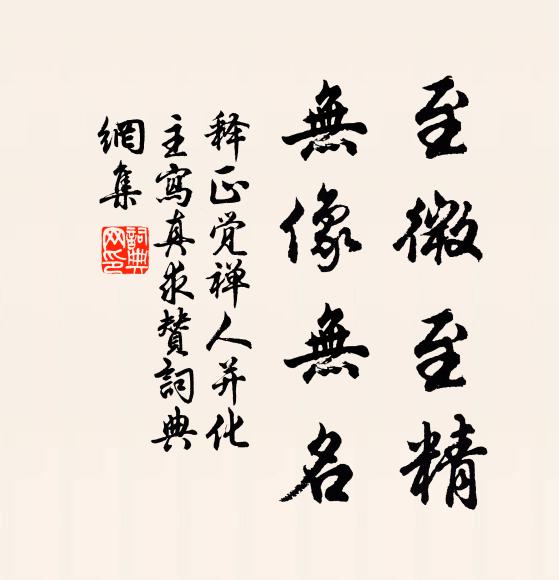 至微至精
無像無名
释正觉禅人并化
主寫真求赞詞典
網集
詞典
网印